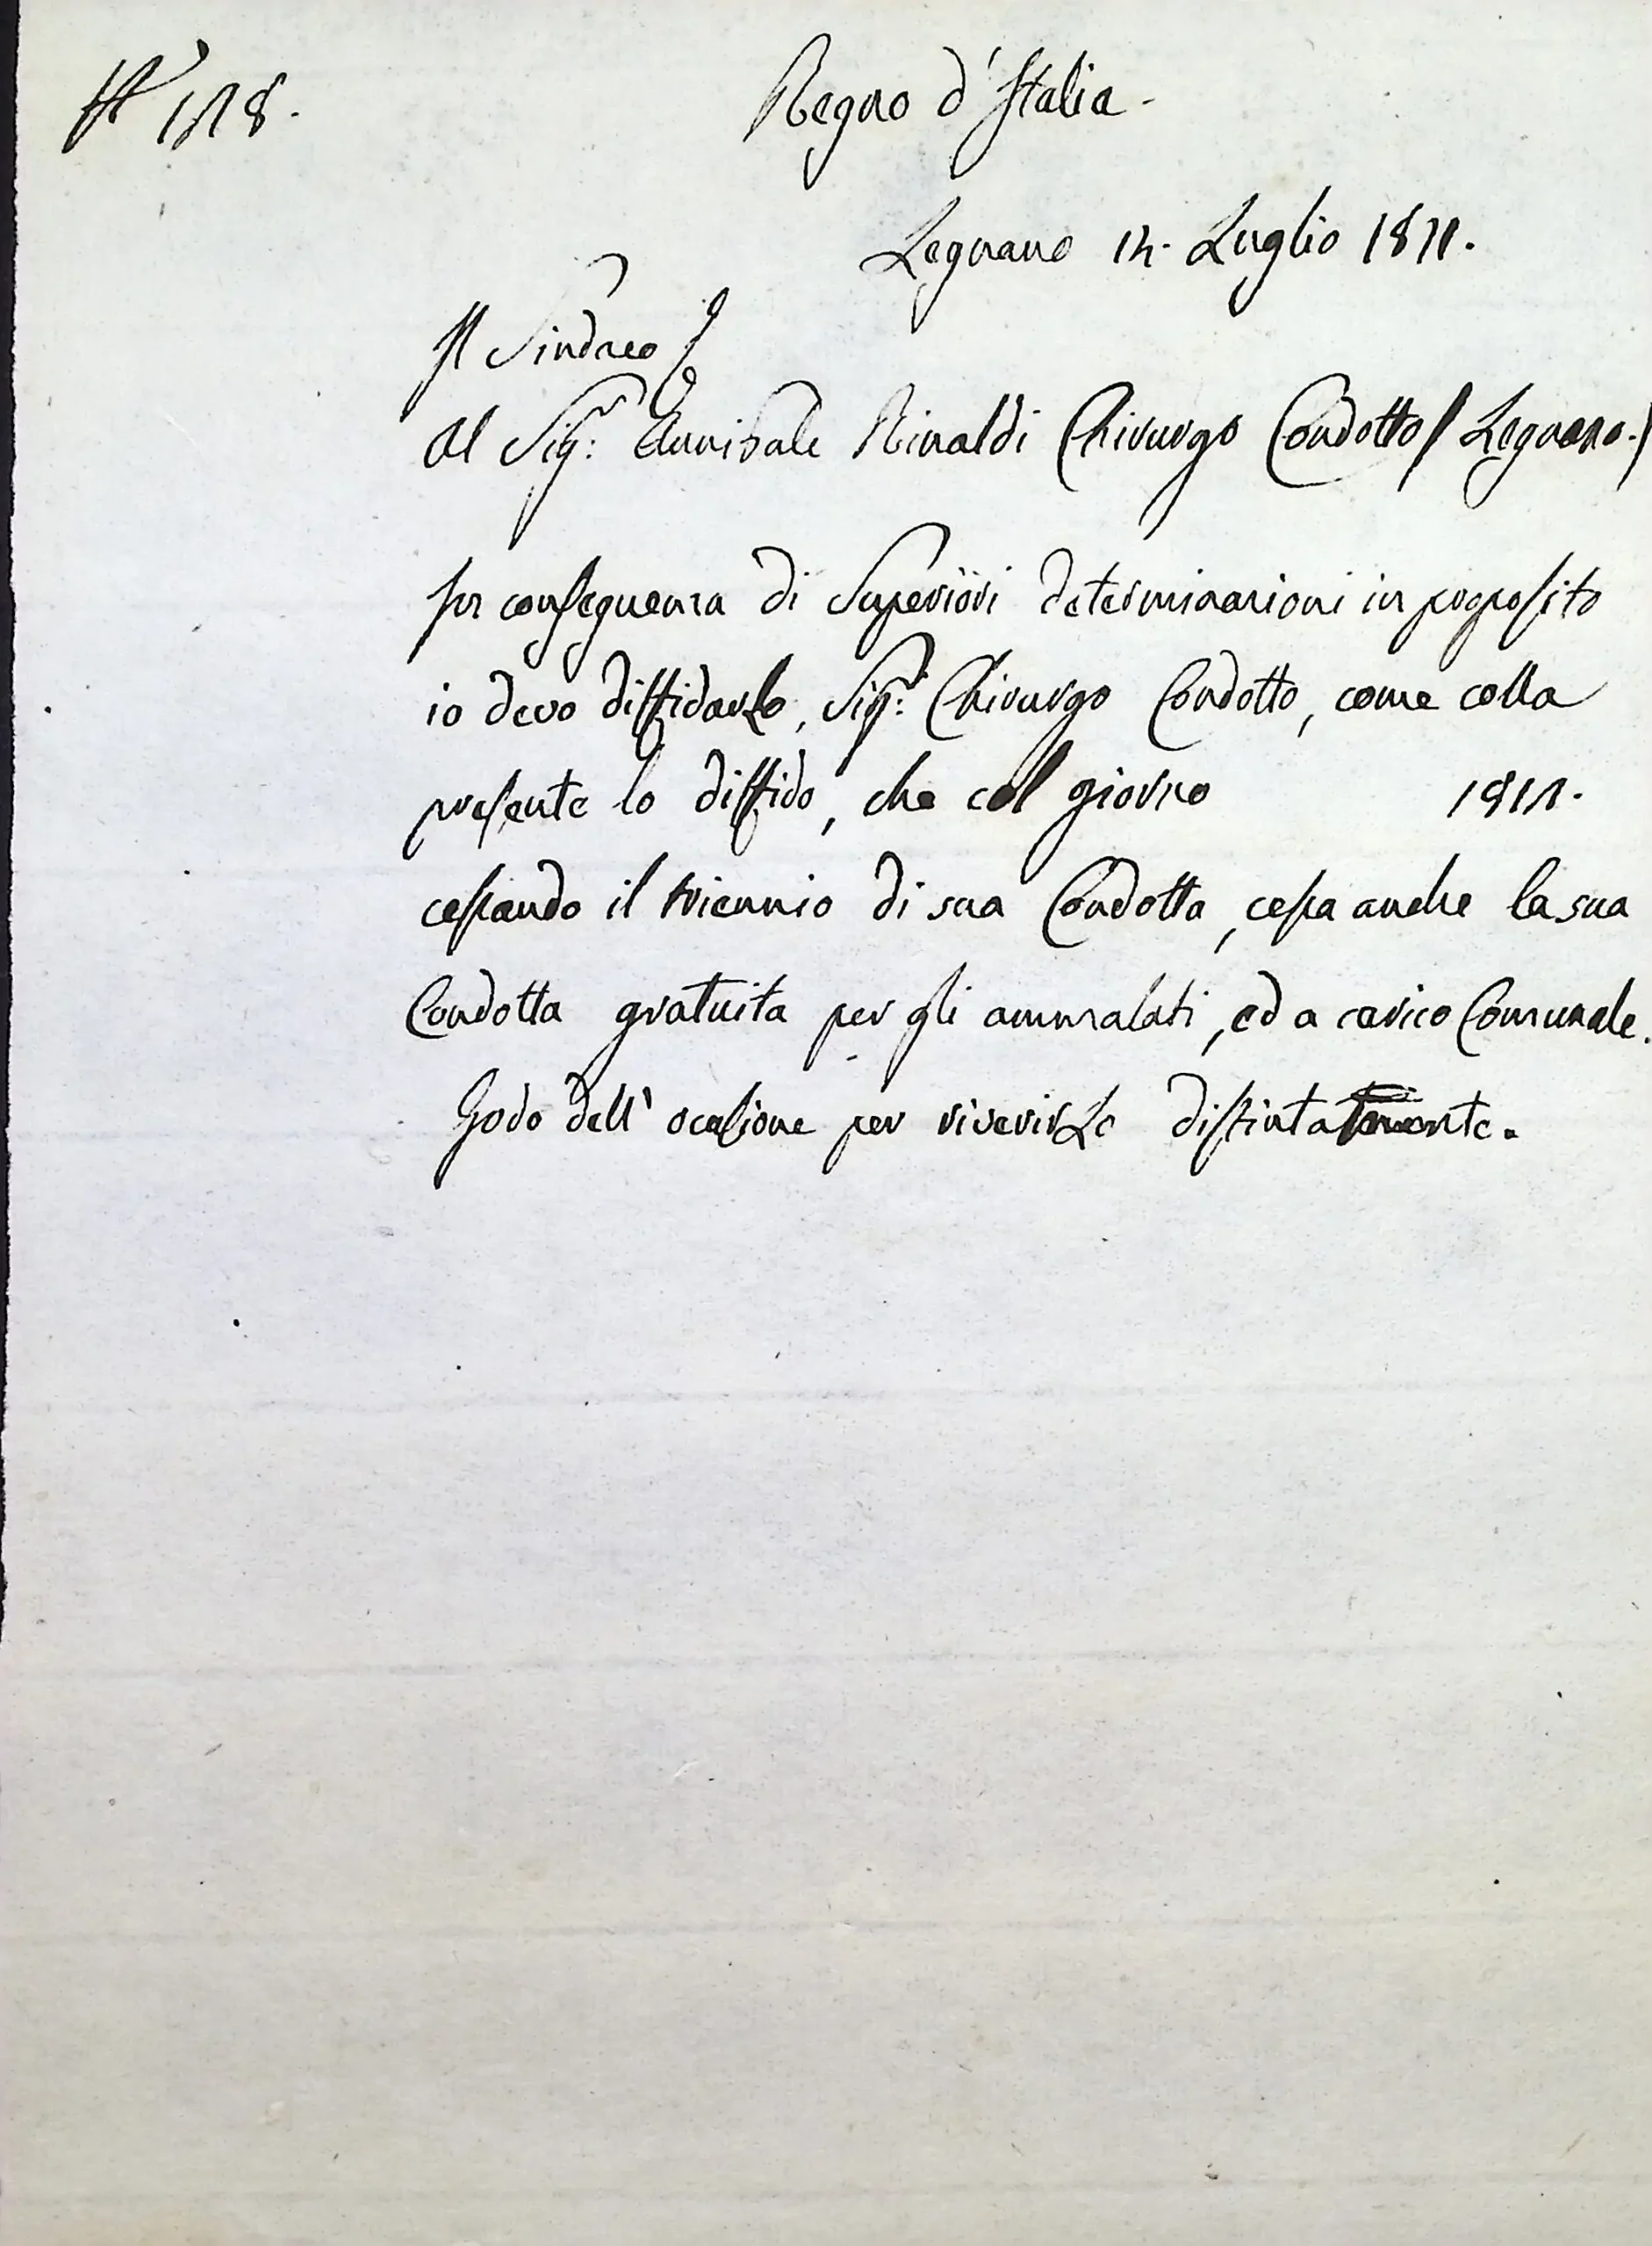 N° 1118.
Regno d'Italia.
Legnano 14. Luglio 1811.
Il Sindaco
Al Sig.r Annibale Rinaldi Chirurgo Condotto / Legnano./
Per conseguenza di Superiori determinazioni in proposito
io devo diffidarlo, Sig.r Chirurgo Condotto, come colla
presente lo diffido, che col giorno 1811.
cessando il triennio di sua Condotta, cessa anche la sua
Condotta gratuita per gli ammalati, ed a carico Comunale.
Godo dell' ocasione per riverirLo distintamente.